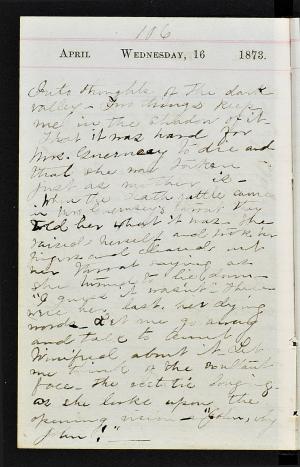 106
APRIL WEDNESDAY, 16 1873.
Into thoughts of the dark
valley - Two things keep
me in the shadow of it.
That it was hard for
Mrs. Guernsey to die and
that she was taken
just as mother is -
When the death rattle came
in Mrs Guernsey's throat they
told her what it was. She
raised herself and took her
fingers and cleaned out
her throat saying as
she turned to lie down -
"I guess it wasn't" - These
were her last, her dying
words. Let me go away
and talk to Aunt
Winifred about it. Let
me think of the
face - the ecstatic longing
as she looks upon the
opening vision - "John, why
John!" -